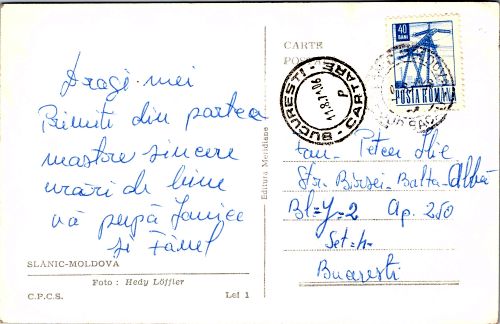 Dragi-mei
Primiti din partea
noastre sincere
urari de bine
vă pupă Janice
și Fănel
SLĂNIC-MOLDOVA
Foto : Hedy Löffler
C.P.C.S. Lei 1
Editura Meridiane
CARTE
40
BANI
POSTA ROMANA
BUCURESTI
CARTARE
11.8.71.06
P
Fam. Petcu Ilie
Str. Bîrsei-Balta-Albă
Bl=Y=2 Ap. 250
Set=4-
Bucuresti